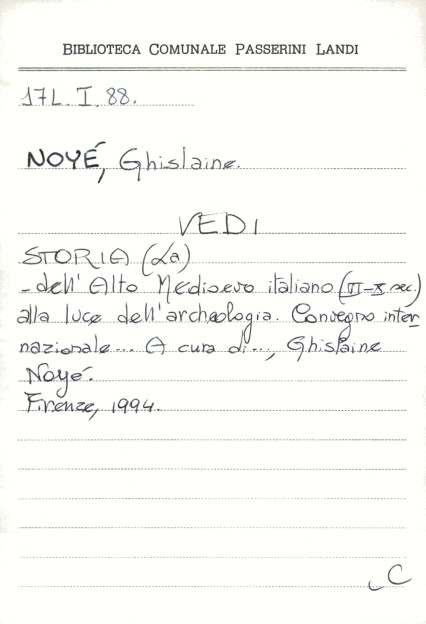 BIBLIOTECA COMUNALE PASSERINI LANDI
17L. I. 88.
NOYÉ, Ghislaine.
VEDI
STORIA (La)
-dell'Alto Medioevo italiano (VI-X sec.)
alla luce dell'archeologia. Convegno inter
nazionale... A cura di..., Ghislaine
Noyé.
Firenze, 1994.
C